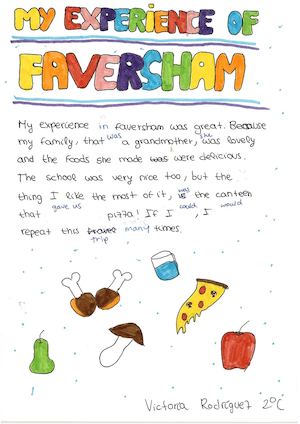 MY EXPERIENCE OF
FAVERSHAM
My experience in faversham was great. Because
my family, that was a grandmother, she was lovely
and the foods she made was were delicious.
The school was very nice too, but the
thing I like the most of it, was is the canteen
that gave us pizza! If I could, I would
repeat this travel trip many times.
Victoria Rodríguez 2ºC